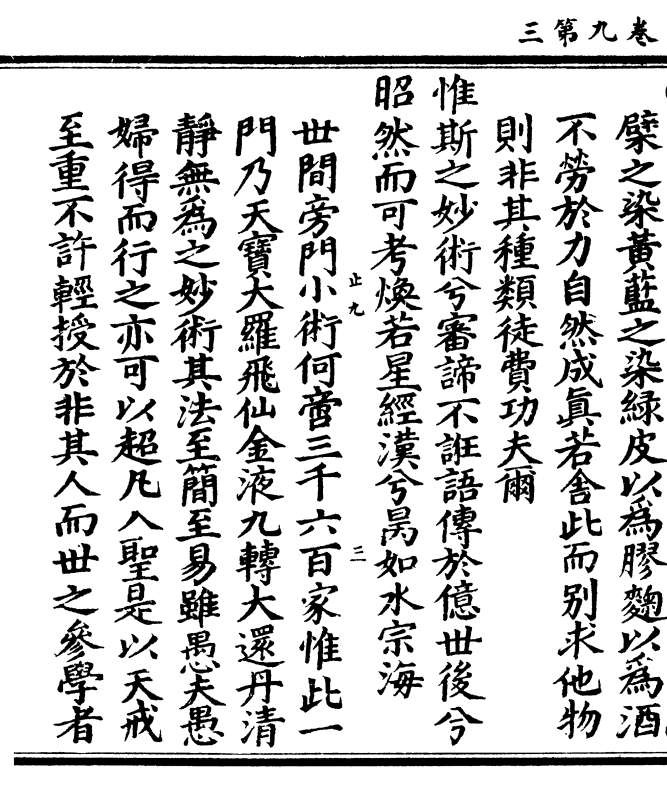 三第九卷
檗之染黃藍之染綠皮以為膠麴以為酒
不勞於力自然成眞若舍此而别求他物
則非其種類徒費功夫爾
惟斯之妙術兮審諦不誑語傳於億世後兮
昭然而可考煥若星經漢兮昺如水宗海
世間旁門小術何啻三千六百家惟此一
止九
三
門乃天寶大羅飛仙金液九轉大還丹清
靜無為之妙術其法至簡至易雖愚夫愚
婦得而行之亦可以超凡入聖是以天戒
至重不許輕授於非其人而世之參學者